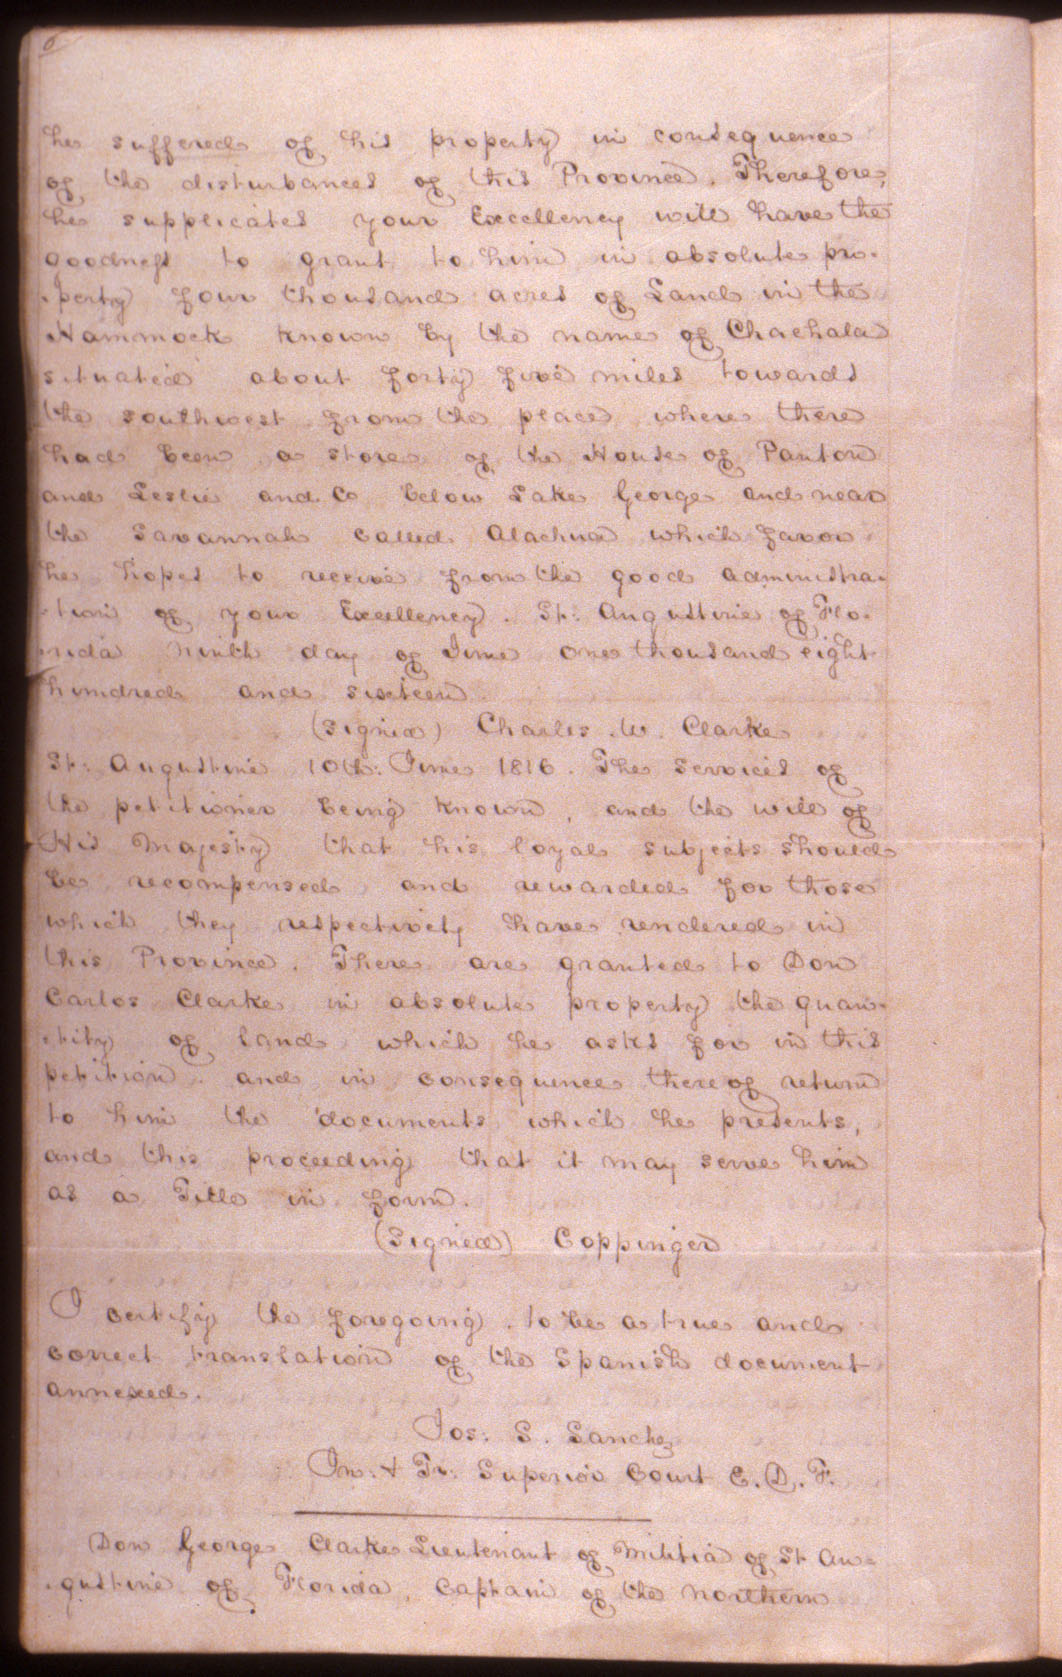 6
he suffered of his property in consequence
of the disturbances of this Province. Therefore,
he supplicates your Excellency will have the
goodness to grant to him in absolute pro-
-perty four thousand acres of Land in the
Hammock known by the name of Chachala
situated about forty five miles towards
the southwest from the place where there
had been a store of the House of Panton
and Leslie and Co below Lake George and near
the Savannah called Alachua which favor
he hopes to receive from the good administra-
-tion of your Excellency. St: Augustine of Flo-
-rida ninth day of June one thousand eight
hundred and sixteen
(Signed) Charles W. Clarke
St: Augustine 10th: June 1816. The services of
the petitioner being known, and the will of
His Majesty that his loyal subjects should
be recompensed and rewarded for those
which they respectively have rendered in
this Province. There are granted to Don
Carlos Clarke in absolute property the quan-
-tity of land which he asks for in this
petition. and in consequence thereof return
to him the documents which he presents,
and this proceeding that it may serve him
as a Title in form.
(Signed) Coppinger
I certify the foregoing to be a true and
correct translation of the Spanish document
annexed.
Jos: S. Sanchez
In: & Tr: Superior Court E. D. F.
Don George Clarke Lieutenant of Militia of St Au-
-gustine of Florida, Captain of the northern